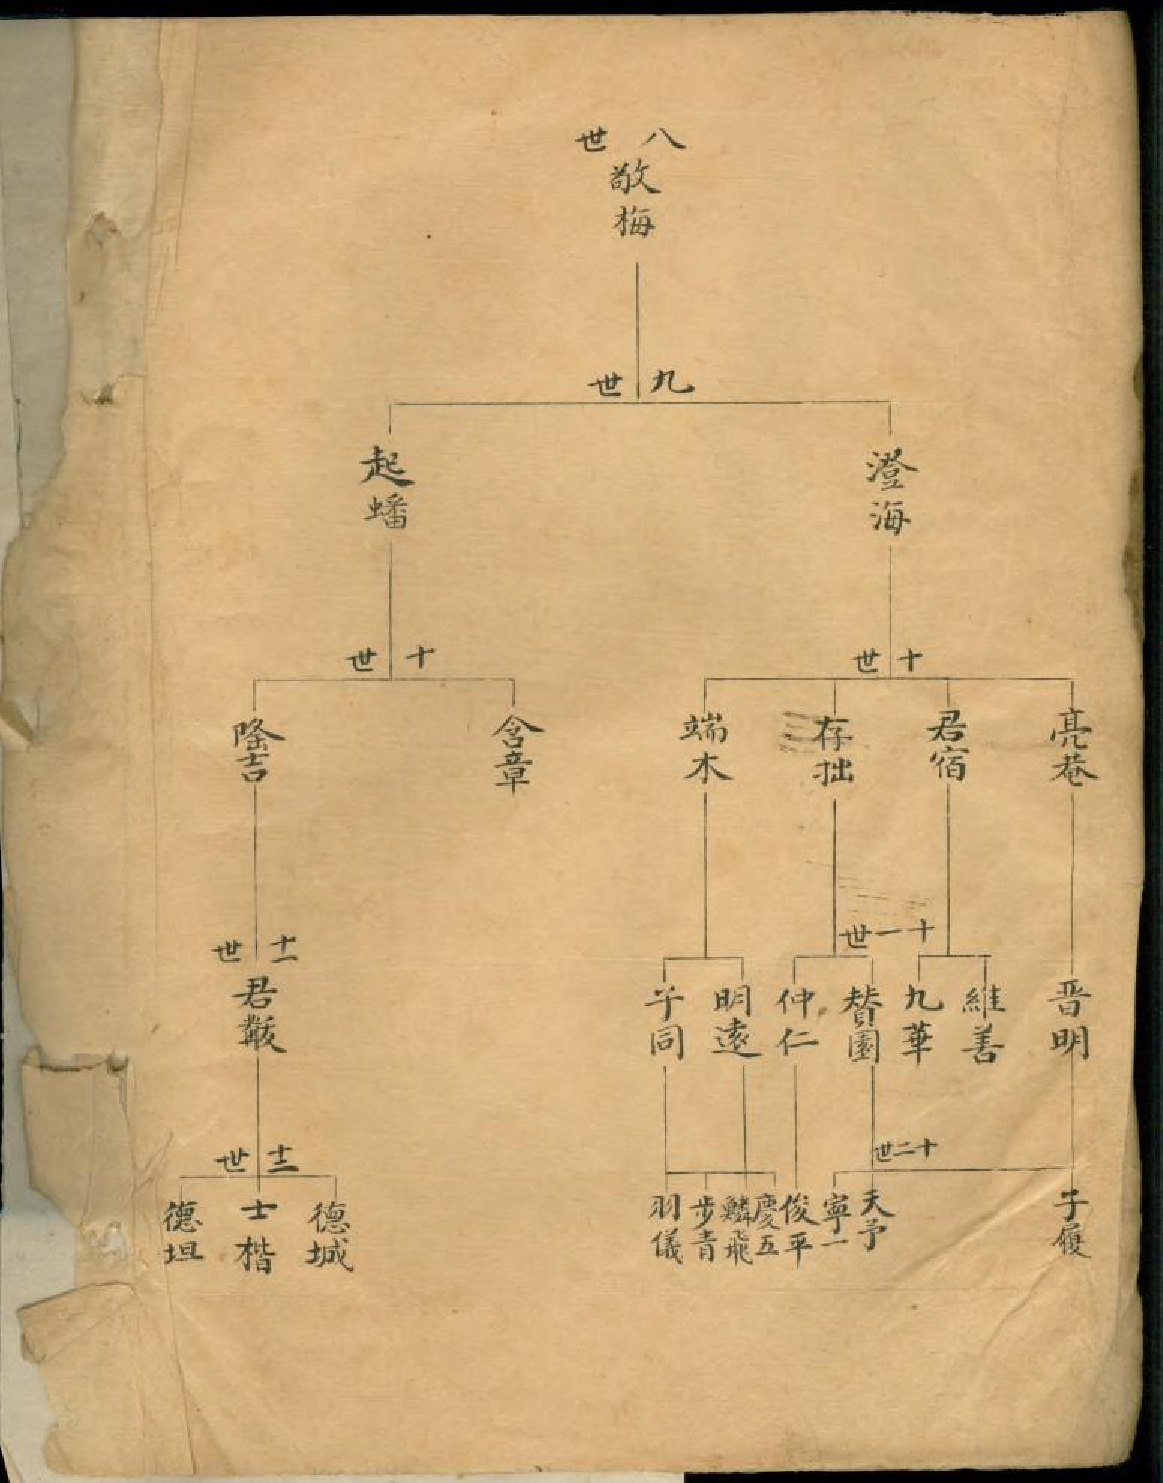 八世
敬梅
九世
澄海
起蟠
十世
十世
亮巷
君宿
存拙
端木
含章
隆吉
十一世
十一世
晋明
維善
九華
賛園
仲仁
明遠
同
君
十二世
十二世
子履
天予
寧一
俊平
慶五
鱗飛
步青
羽儀
德城
士楷
德坦